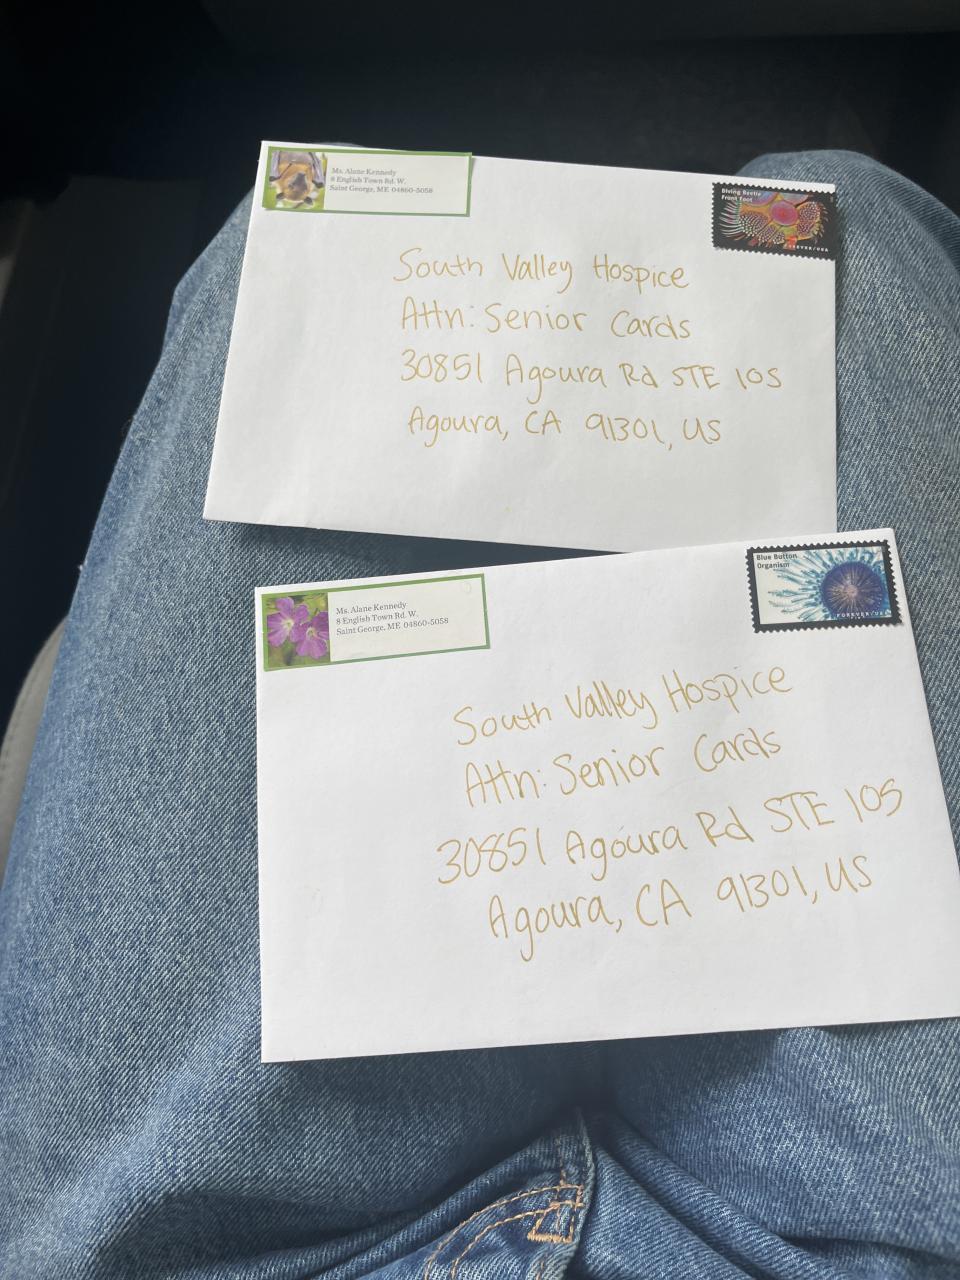 Ms. Alane Kennedy
8 English Town Rd. W.
Saint George, ME 04860-5058
Diving Beetle
Front Foot
FOREVER/USA
South Valley Hospice
Attn: Senior Cards
30851 Agoura Rd STE 105
Agoura, CA 91301, US
Ms. Alane Kennedy
8 English Town Rd. W.
Saint George, ME 04860-5058
Blue Button
Organism
FOREVER/USA
South Valley Hospice
Attn: Senior Cards
30851 Agoura Rd STE 105
Agoura, CA 91301, US